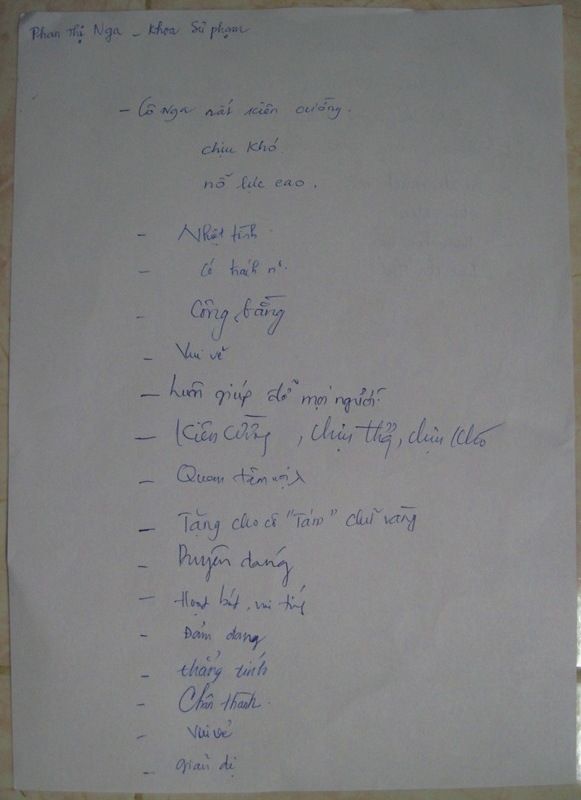 Phan Thị Nga - Khoa Sư phạm
- Cô Nga rất kiên cường.
chịu khó
nỗ lực cao.
- Nhiệt tình
- Có trách n'.
- Công bằng
- Vui vẻ
- Luôn giúp đỡ mọi người.
- Kiên cường, chịu thử, chịu khó
- Quan tâm
- Tặng cho cô "Tám" chữ vàng
- Duyên dáng
- Hoạt bát, vui tính
- Đảm đang
- thẳng tính
- Chân thành.
- Vui vẻ
- giản dị